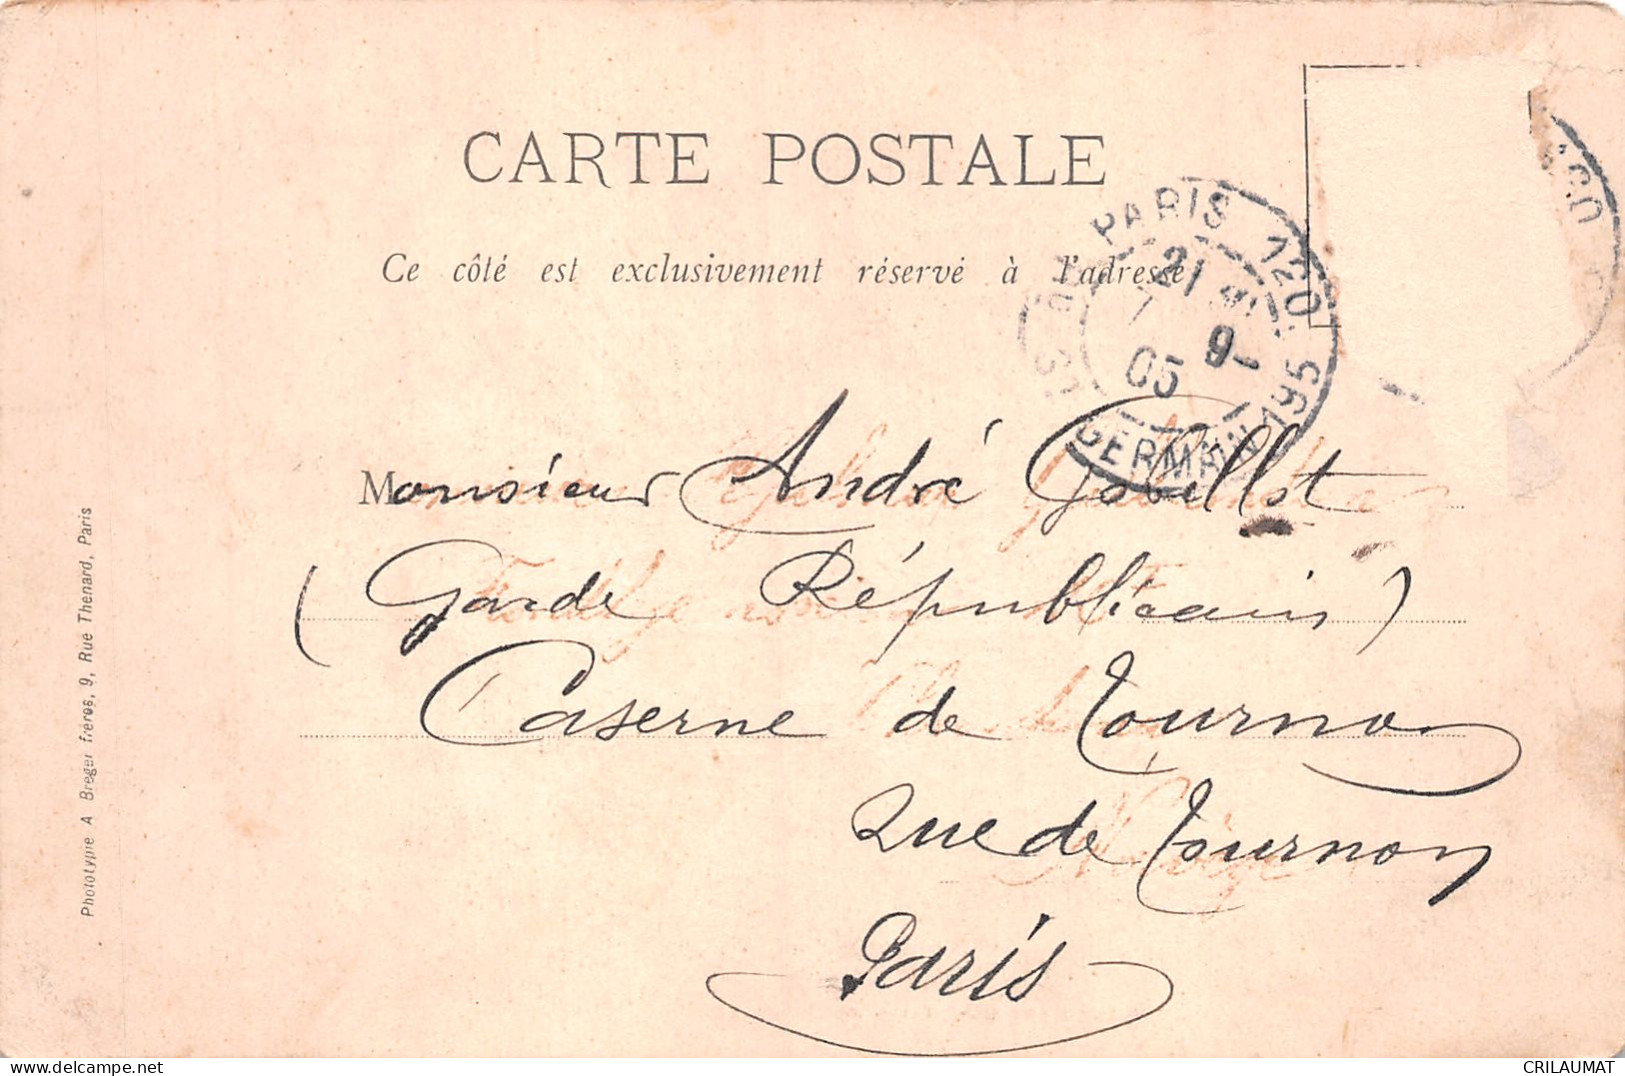 CARTE POSTALE
Ce côté est exclusivement réservé à l'adresse
PARIS 120
21
7
9-
05
195
GERMAIN
Monsieur André Gobillot
(Garde Républicain)
Caserne de Tournon
Rue de Tournon
Paris
Phototypie A Breger frères, 9, Rue Thenard, Paris
CRILAUMAT